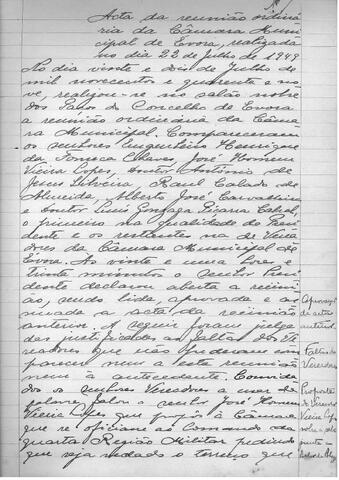 Acta da reunião ordiná-
ria da Câmara Muni-
cipal de Evora, realizada
no dia 22 de Julho de 1949
No dia vinte e dois de Julho de
mil novecentos e quarenta e no-
ve, realizou-se no salão nobre
dos Paços do Concelho de Evora
a reunião ordinária da Câma-
ra Municipal. Compareceram
os senhores Engenheiro Henrique
da Fonseca Chaves, José Homem
Vieira Lopes, doutor António de
Jesus Silveira, Raul Calado de
Almeida, Alberto José Carvalheira
e doutor Luis Gonzaga Cabral
o primeiro na qualidade de Presi-
dente e os restantes na de Verea-
dores da Câmara Municipal de
Evora. Às vinte e uma horas e
trinta minutos o senhor Presi-
dente declarou aberta a reuni-
ão, sendo lida, aprovada e as-
sinada a acta da reunião
anterior. A seguir foram julga-
das justificadas as faltas dos Ve-
readores que não puderam com-
parecer nem a esta reunião
nem à antecedente. Convida-
dos os senhores Vereadores a usar da
palavra, falou o senhor José Homem
Vieira Lopes que propôs à Câmara
que se oficiasse ao Comando da
quarta Região Militar pedindo
que seja vedado o terreno que
Aprovação
da acta
anterior
Faltas de
Vereadores
Proposta
do Vereador
Vieira Lopes